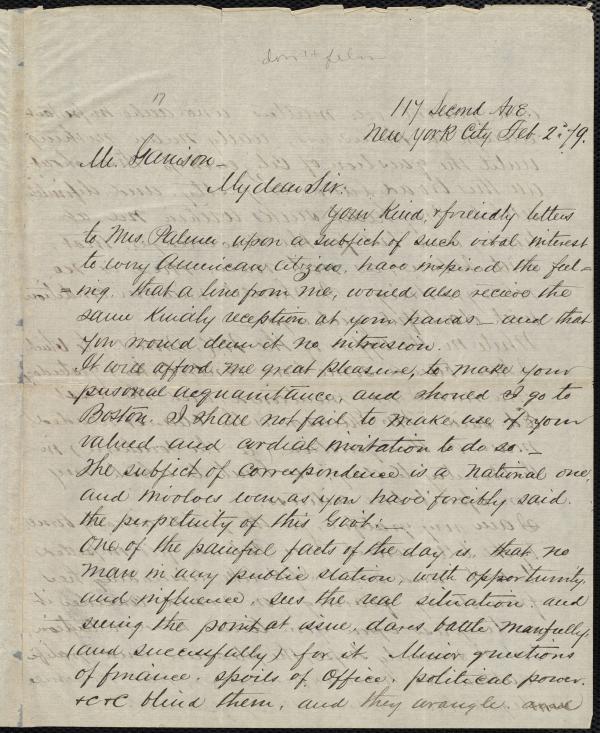 117 Second Ave.
New York City, Feb. 2d 79.
Mr. Garrison—
My dear Sir:
Your kind, & friendly letters
to Mrs. Palmer, upon a subject of such vital interest
to every American citizen, have inspired the feel=
=ing, that a line from me, would also recieve the
same kindly reception at your hands— and that
you would deem it no intrusion.
It will afford me great pleasure, to make your
personal acquaintance, and should I go to
Boston. I shall not fail, to make use of your
valued and cordial invitation to do so.—
The subject of correspondence is a National one,
and involves even as you have forcibly said.
the perpetuity of this Govt:—
One of the painful facts of the day is, that no
man in any public station, with opportunity,
and influence, sees the real situation, and
seeing the point at issue, dares battle manfully,
(and successfully) for it. Minor questions
of finance, spoils of office, political power.
&c &c blind them, and they wrangle